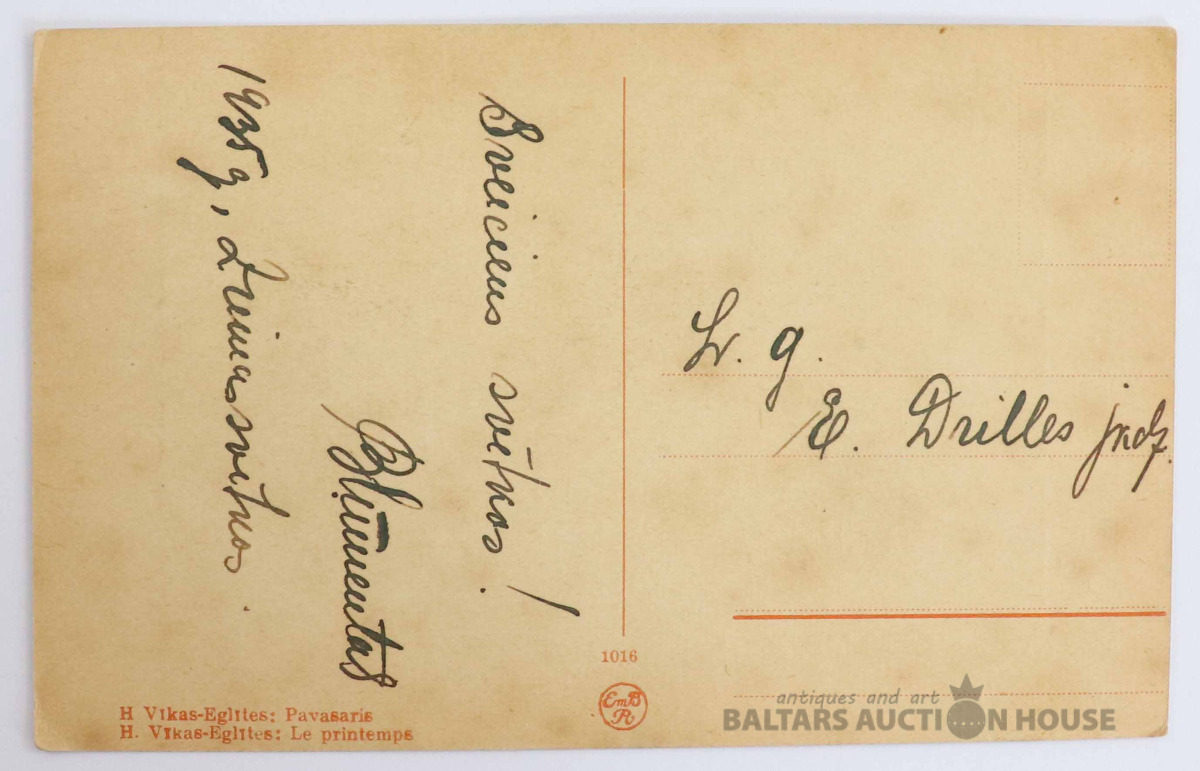 Sveiciens svētkos!
Blūmentas
1935 g, Ziemassvētkos.
Lv. g.
E. Drilles jndz.
1016
EmB
R
H Vīkas-Eglītes: Pavasaris
H. Vīkas-Eglītes: Le printemps
antiques and art
BALTARS AUCTION HOUSE